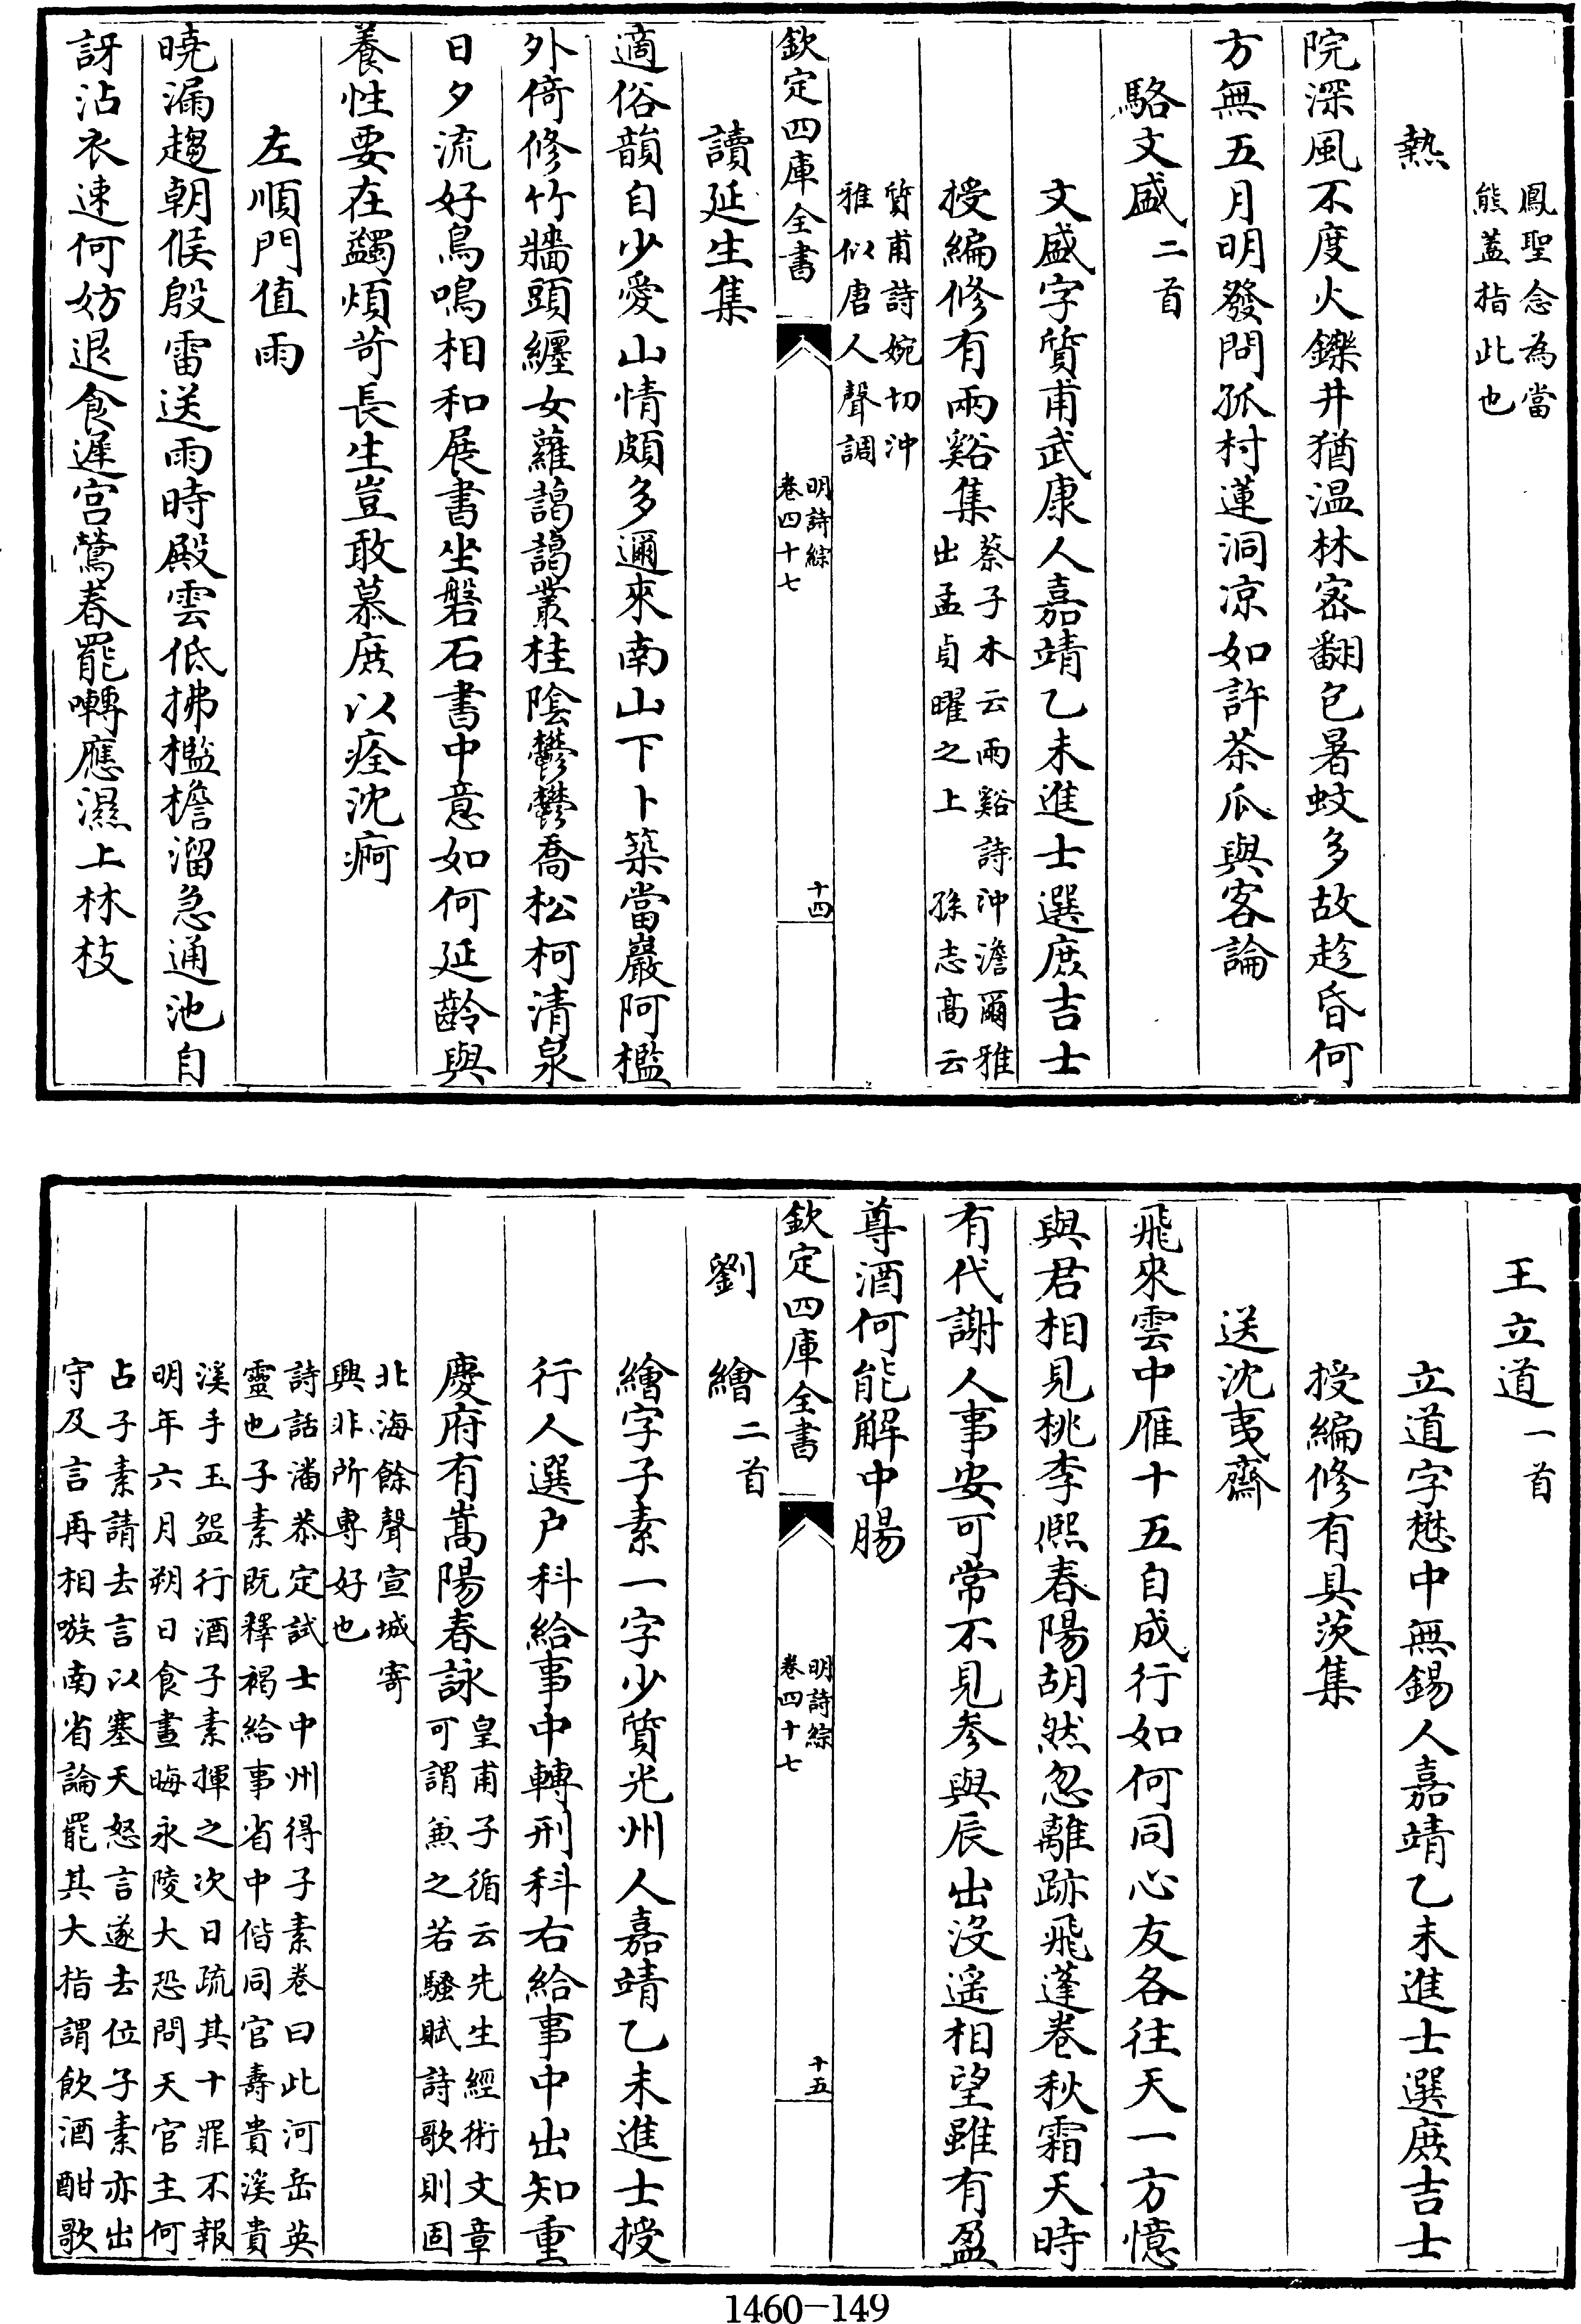 鳳聖念為當
熊蓋指此也
熱
院深風不度火鑠井猶溫林宻翻包暑蚊多故趁昏何
方無五月明發問孤村蓮洞凉如許茶瓜與客論
駱文盛二首
文盛字質甫武康人嘉靖乙未進士選庶吉士
授編修有兩谿集蔡子木云兩谿詩沖澹爾雅
出孟貞曜之上　孫志髙云
質甫詩婉切沖
雅似唐人聲調
欽定四庫全書
明詩綜
卷四十七
十四
讀延生集
適俗韻自少愛山情頗多邇來南山下卜築當巖阿檻
外倚修竹牆頭纒女蘿藹藹叢桂陰鬱鬱喬松柯清泉
日夕流好鳥鳴相和展書坐磐石書中意如何延齡與
養性要在蠲煩苛長生豈敢慕庶以痊沈痾
左順門值雨
曉漏趨朝候殷雷送雨時殿雲低拂檻檐溜急通池自
訝沾衣速何妨退食遲宫鶯春罷囀應濕上林枝
王立道一首
立道字懋中無錫人嘉靖乙未進士選庶吉士
授編修有具茨集
送沈夷齋
飛來雲中雁十五自成行如何同心友各往天一方憶
與君相見桃李熈春陽胡然忽離跡飛蓬卷秋霜天時
有代謝人事安可常不見參與辰出沒遥相望雖有盈
尊酒何能解中腸
欽定四庫全書
明詩綜
卷四十七
十五
劉繪二首
繪字子素一字少質光州人嘉靖乙未進士授
行人選户科給事中轉刑科右給事中出知重
慶府有嵩陽春詠皇甫子循云先生經術文章
可謂兼之若騷賦詩歌則固
北海餘聲宣城寄
興非所專好也
詩話潘恭定試士中州得子素卷曰此河岳英
靈也子素既釋褐給事省中偕同官壽貴溪貴
溪手玉盌行酒子素揮之次日疏其十罪不報
明年六月朔日食晝晦永陵大恐問天官主何
占子素請去言以塞天怒言遂去位子素亦出
守及言再相嗾南省論罷其大指謂飲酒酣歌
1460—149